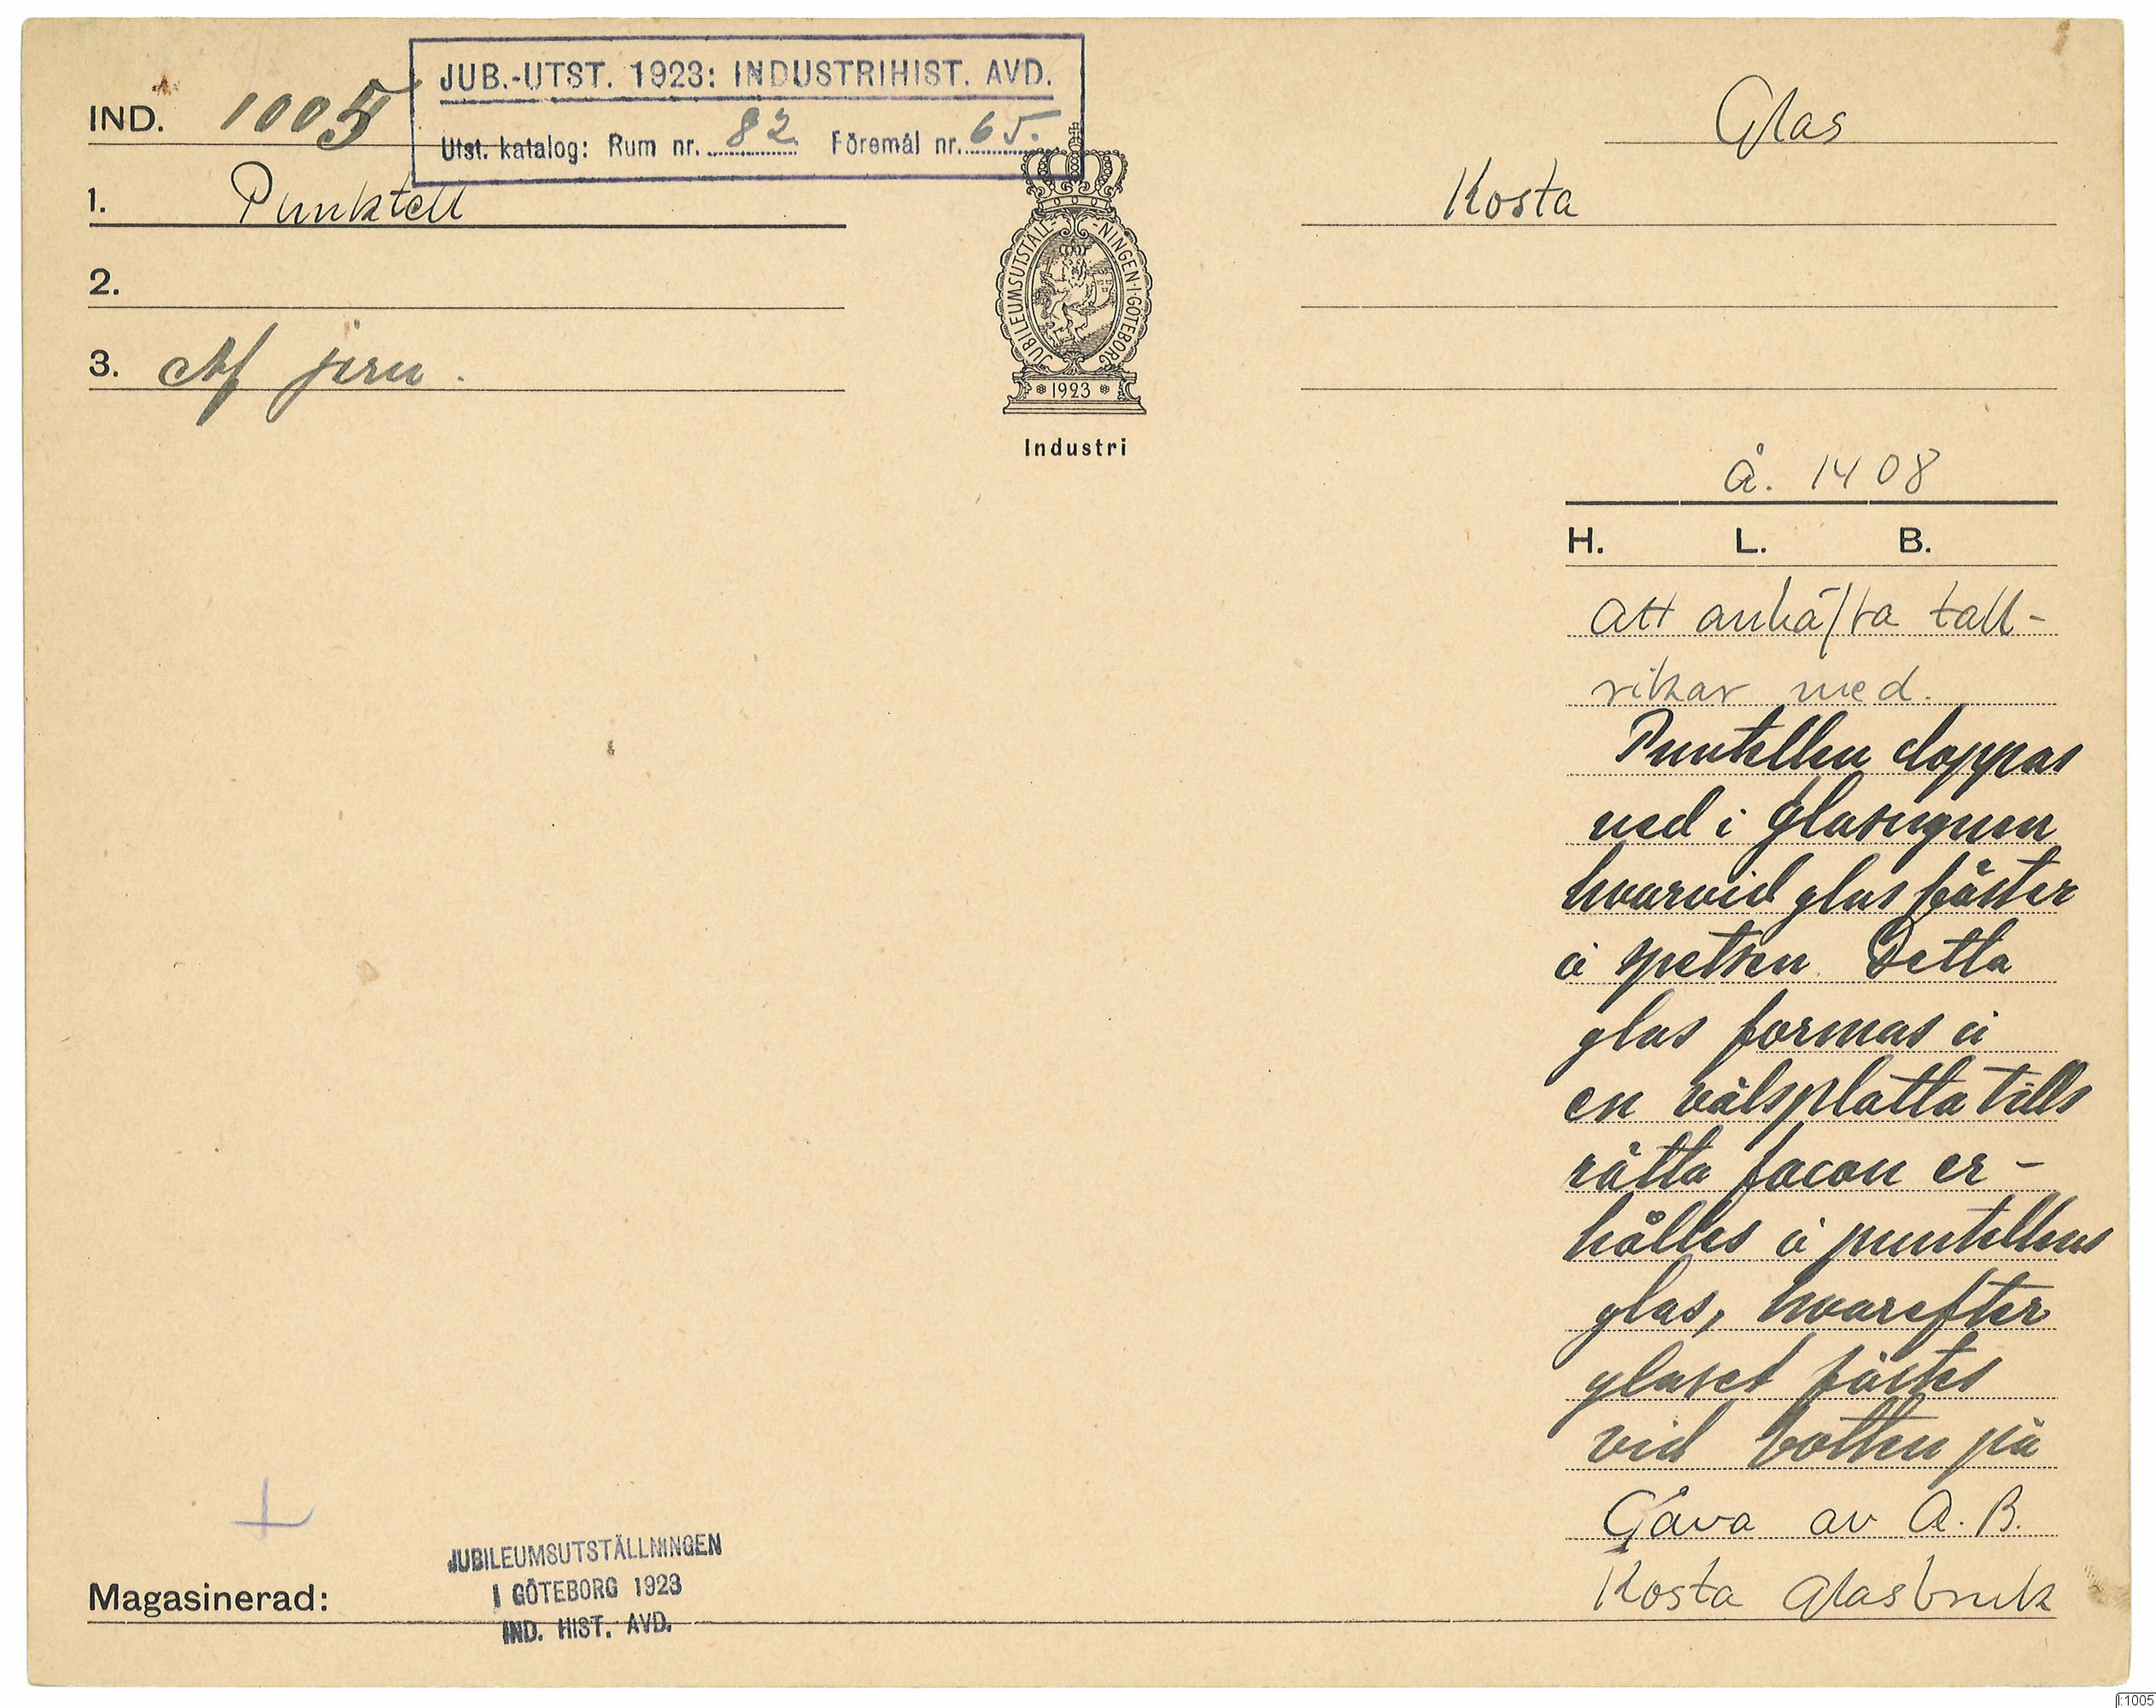 JUB.-UTST. 1923: INDUSTRIHIST. AVD.
Utst. katalog: Rum nr. 82 Föremål nr. 65.
IND. 1005
1. Punktell
2.
3. Af jern.
JUBILEUMSUTSTÄLL-NINGEN·I·GÖTEBORG
1923
Industri
Glas
Kosta
Å. 1408
H. L. B.
Att anhäfta tall-
rikar med.
Puntellen doppas
ned i glasugnen
hvarvid glas fäster
å spetsen. Detta
glas formas å
en välsplatta tills
rätta facon er-
hålles å puntellens
glas, hvarefter
glaset fästes
vid botten på
Gåva av A.B.
Kosta Glasbruk
Magasinerad:
JUBILEUMSUTSTÄLLNINGEN
I GÖTEBORG 1923
IND. HIST. AVD.
I:1005